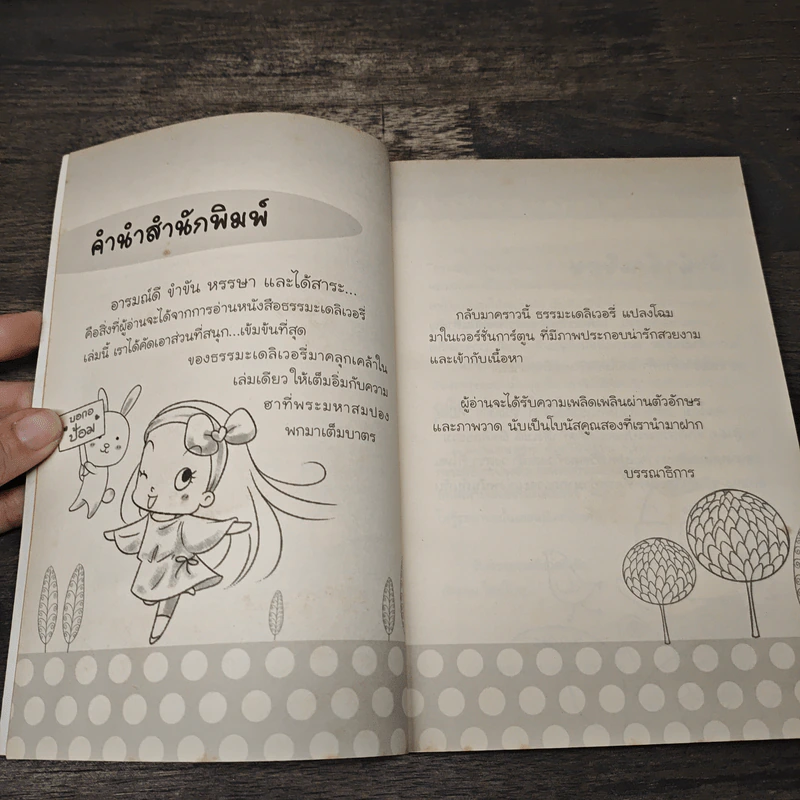 คำนำสำนักพิมพ์
อารมณ์ดี ขำขัน หรรษา และได้สาระ...
คือสิ่งที่ผู้อ่านจะได้จากการอ่านหนังสือธรรมะเดลิเวอรี่
เล่มนี้ เราได้คัดเอาส่วนที่สนุก...เข้มข้นที่สุด
ของธรรมะเดลิเวอรี่มาคลุกเคล้าใน
เล่มเดียว ให้เต็มอิ่มกับความ
ฮาที่พระมหาสมปอง
พกมาเต็มบาตร
บอกอ
ป้อม
กลับมาคราวนี้ ธรรมะเดลิเวอรี่ แปลงโฉม
มาในเวอร์ชั่นการ์ตูน ที่มีภาพประกอบน่ารักสวยงาม
และเข้ากับเนื้อหา
ผู้อ่านจะได้รับความเพลิดเพลินผ่านตัวอักษร
และภาพวาด นับเป็นโบนัสคูณสองที่เรานำมาฝาก
บรรณาธิการ